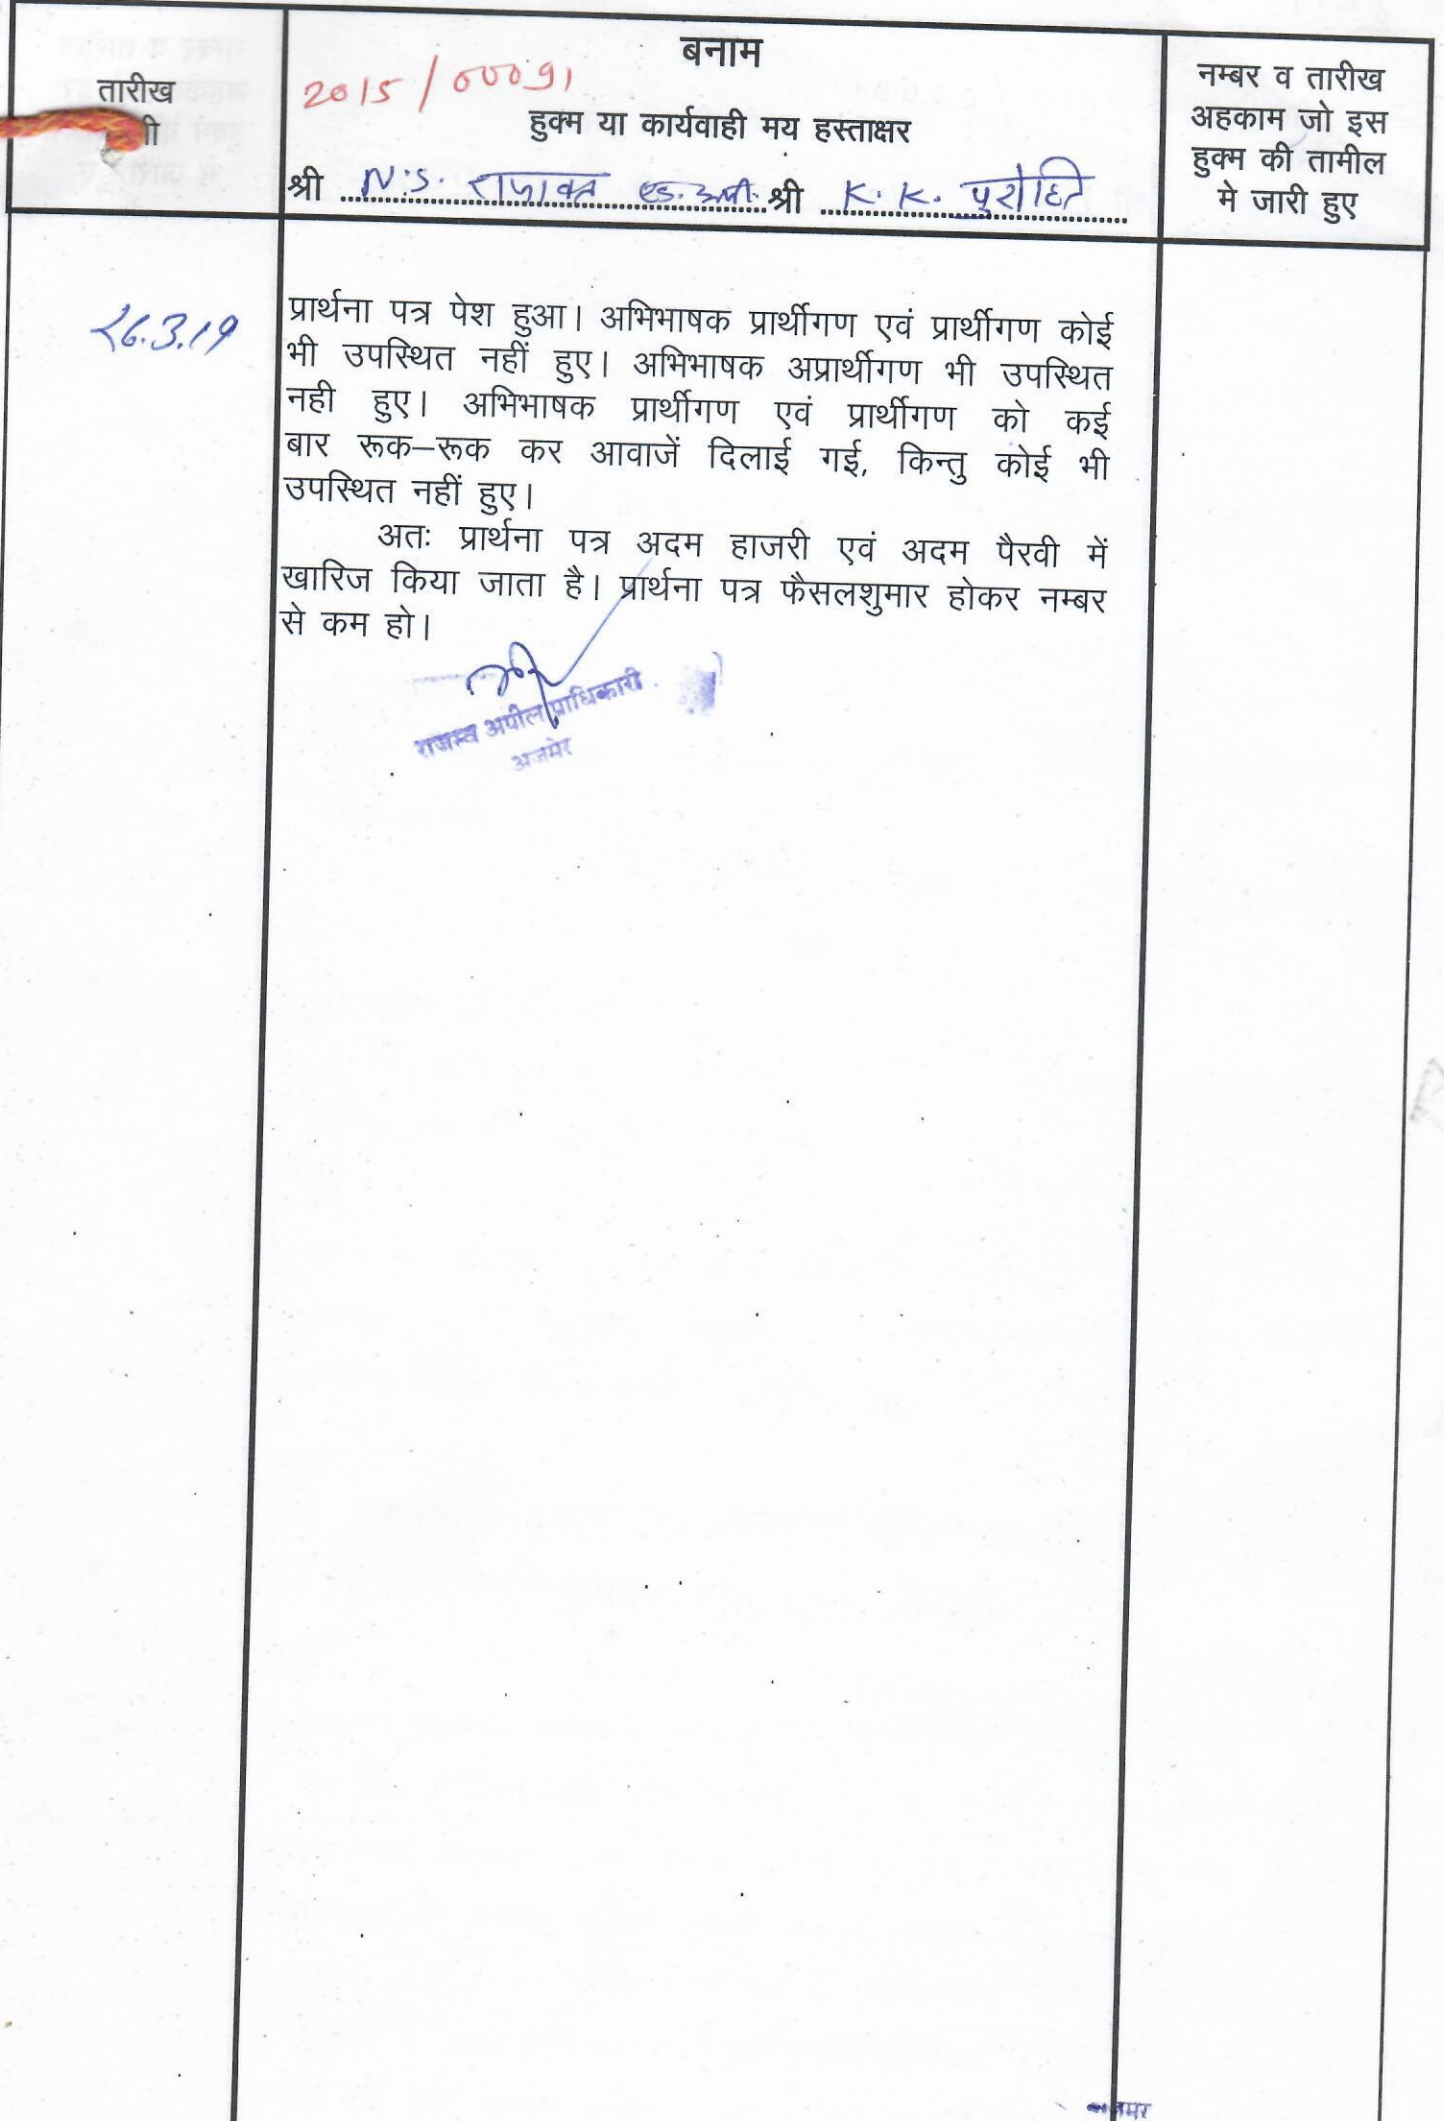 बनाम
तारीख
2015/00091
हुक्म या कार्यवाही मय हस्ताक्षर
श्री N.S. राजावत एड. अपी. श्री K.K. पुरोहित
नम्बर व तारीख
अहकाम जो इस
हुक्म की तामील
मे जारी हुए
26.3.19
प्रार्थना पत्र पेश हुआ। अभिभाषक प्रार्थीगण एवं प्रार्थीगण कोई
भी उपस्थित नहीं हुए। अभिभाषक अप्रार्थीगण भी उपस्थित
नही हुए। अभिभाषक प्रार्थीगण एवं प्रार्थीगण को कई
बार रूक–रूक कर आवाजें दिलाई गई, किन्तु कोई भी
उपस्थित नहीं हुए।
अतः प्रार्थना पत्र अदम हाजरी एवं अदम पैरवी में
खारिज किया जाता है। प्रार्थना पत्र फैसलशुमार होकर नम्बर
से कम हो।
राजस्व अपील प्राधिकारी
अजमेर